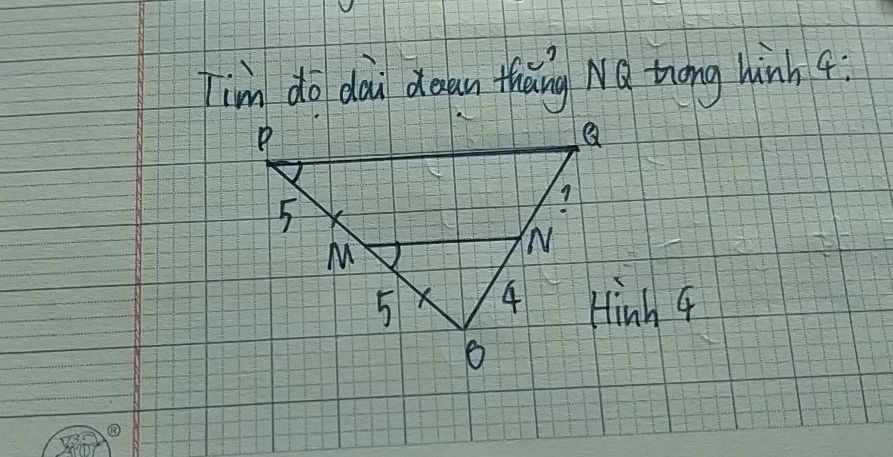 Tìm độ dài đoạn thẳng NQ trong hình 4:
P
Q
5
?
M
N
5
4
Hình 4
O
®